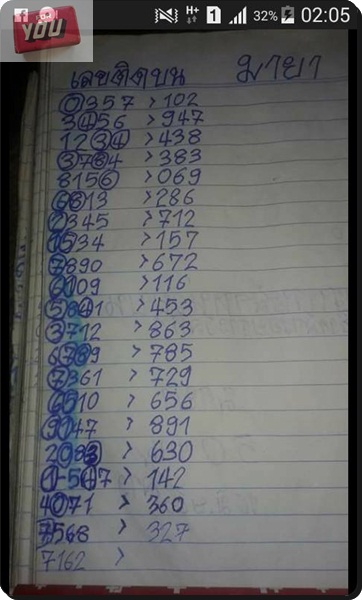 32% 02:05
YOU
เลขติดบน มายา
0357 > 102
3456 > 947
1234 > 438
3784 > 383
8156 > 069
6813 > 286
2345 > 712
1534 > 157
7890 > 672
6109 > 116
5641 > 453
3712 > 863
6789 > 785
7361 > 729
6510 > 656
9147 > 891
2083 > 630
1547 > 142
4071 > 360
7568 > 327
7162 >